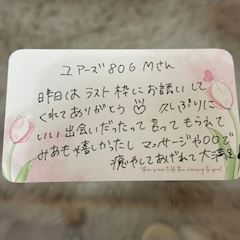 ユアーズ806 Mさん
昨日はラスト枠にお誘いして
くれてありがとう♡ 久しぶりに
いい出会いだったって言ってもらえて
みあも嬉しかったし マッサージや〇〇で
癒やしてあげれて大満足